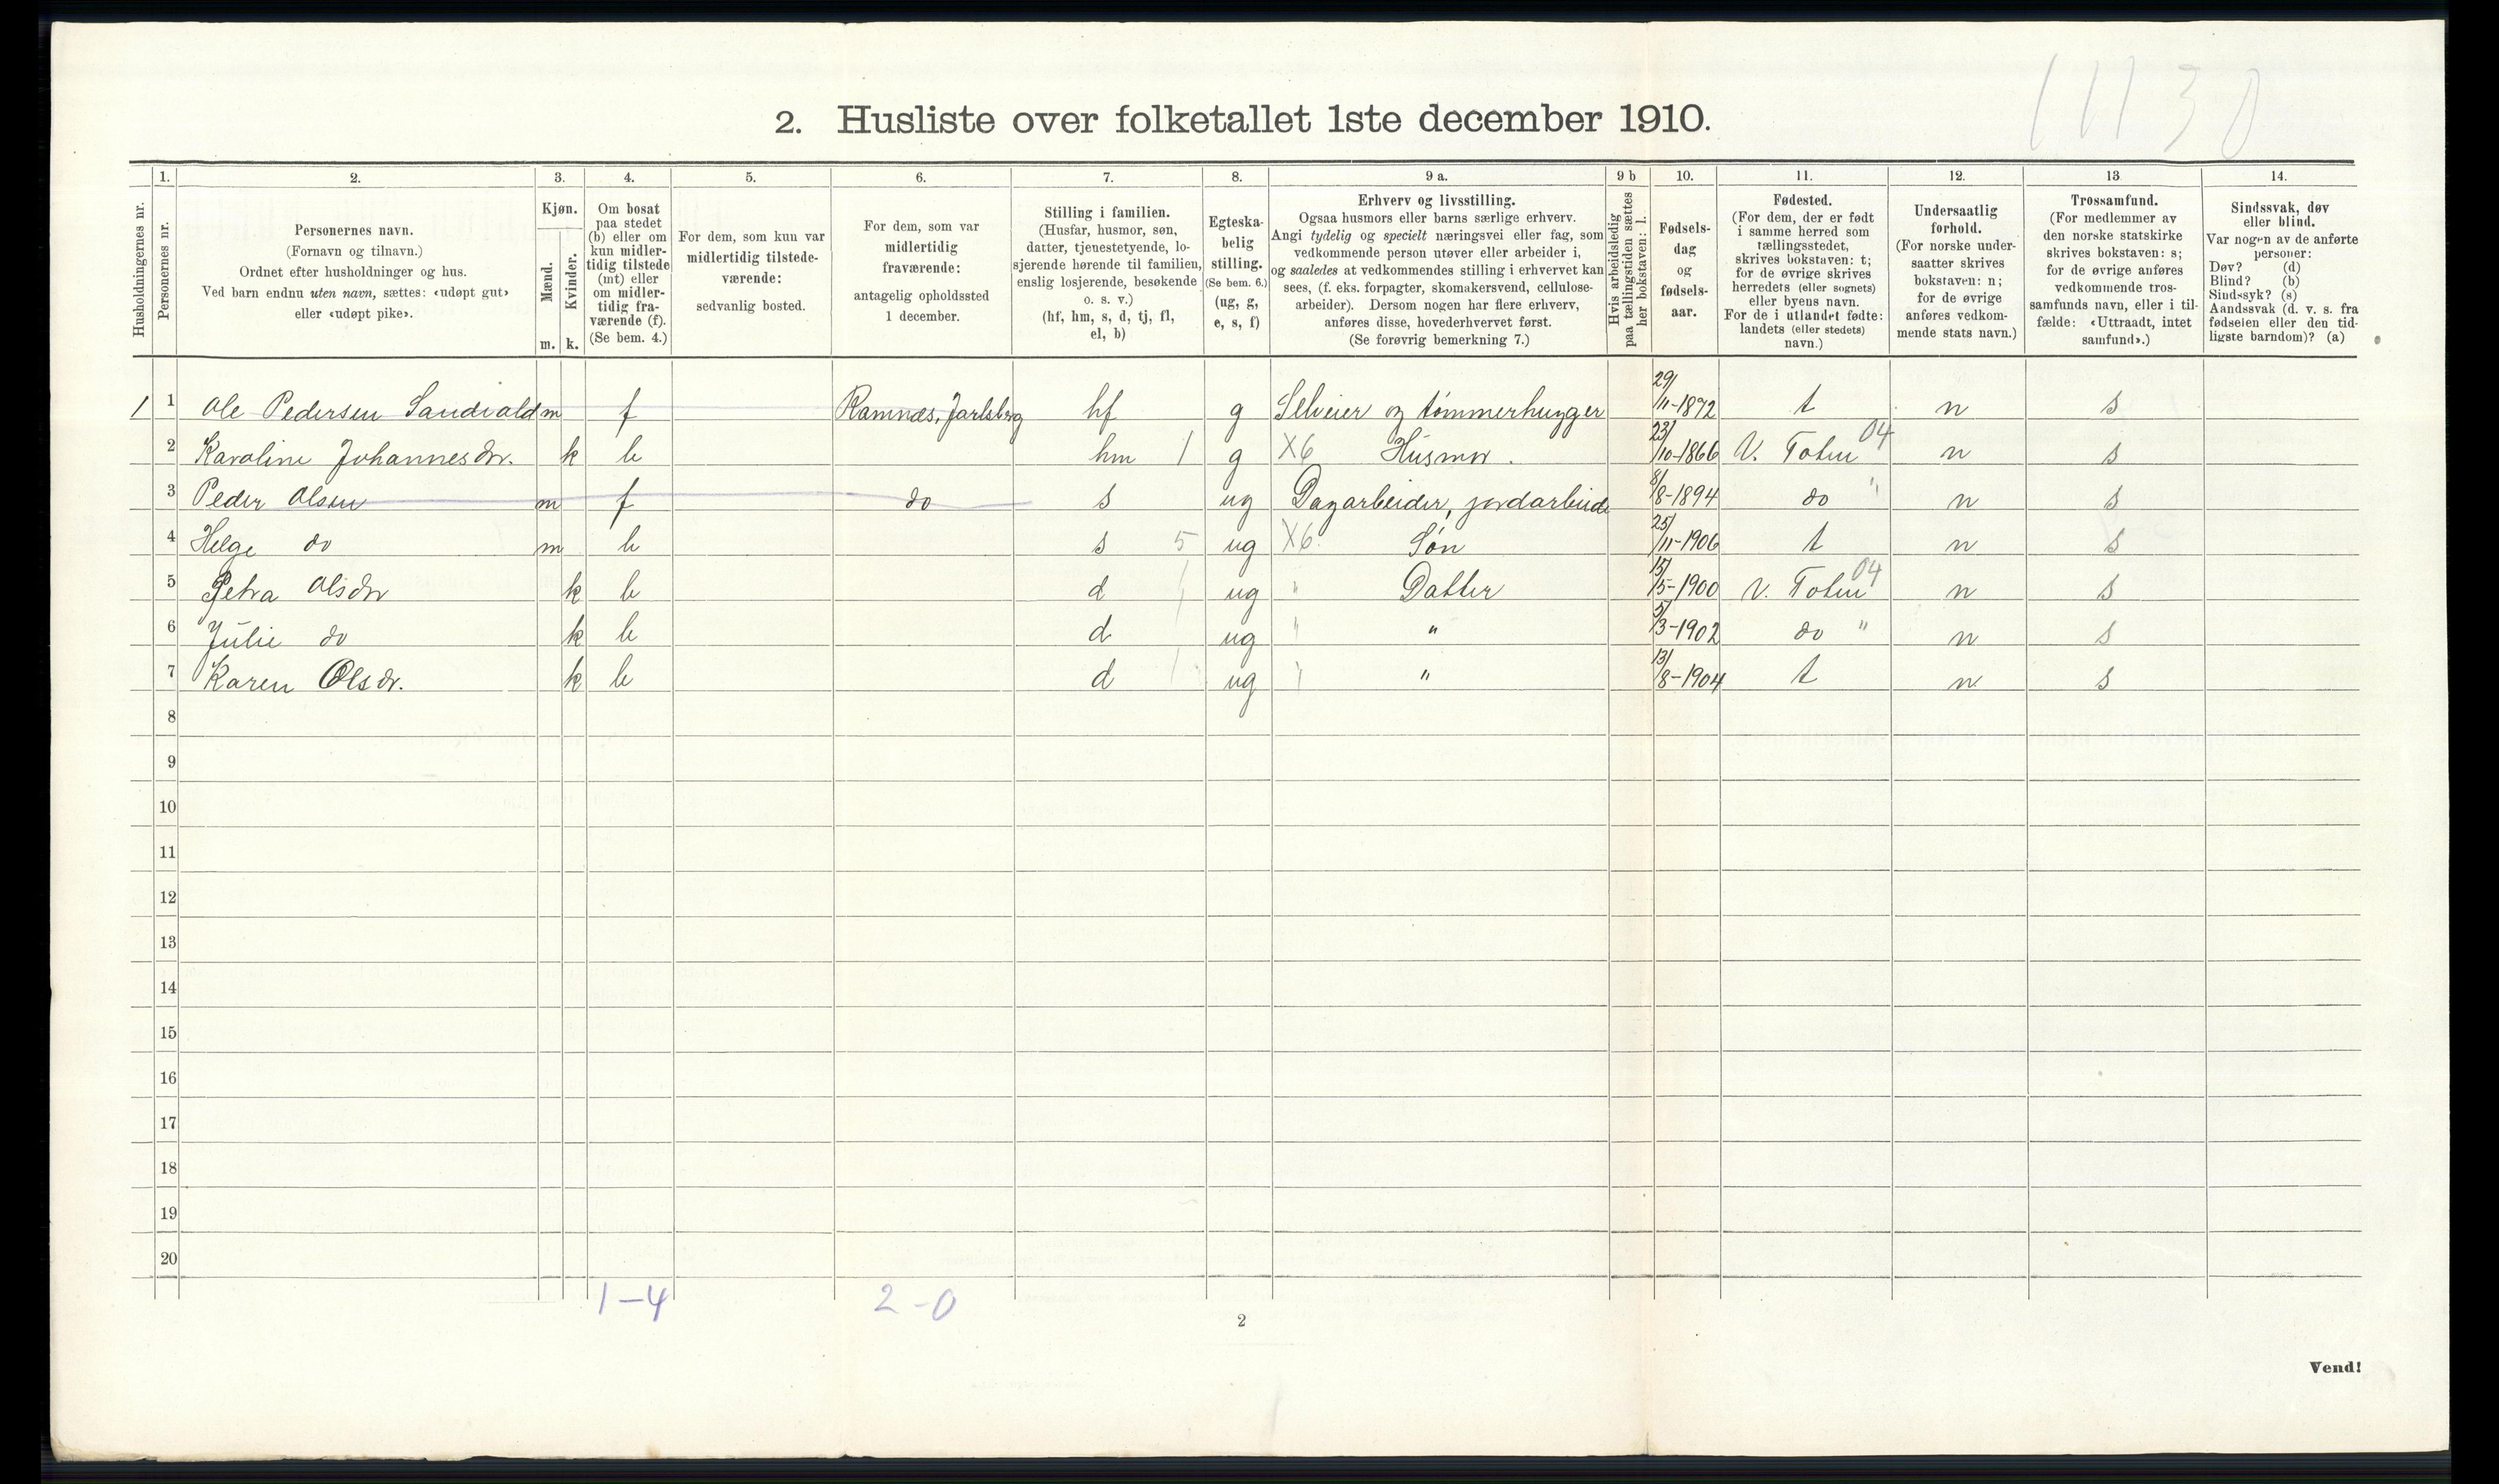 2. Husliste over folketallet 1ste december 1910.
Husholdningernes nr.
1.
Personernes nr.
2.
Personernes navn.
(Fornavn og tilnavn.)
Ordnet efter husholdninger og hus.
Ved barn endnu uten navn, sættes: «udøpt gut»
eller «udøpt pike».
3.
Kjøn.
Mænd.
Kvinder.
m. k.
4.
Om bosat
paa stedet
(b) eller om
kun midler-
tidig tilstede
(mt) eller
om midler-
tidig fra-
værende (f).
(Se bem. 4.)
5.
For dem, som kun var
midlertidig tilstede-
værende:
sedvanlig bosted.
6.
For dem, som var
midlertidig
fraværende:
antagelig opholdssted
1 december.
7.
Stilling i familien.
(Husfar, husmor, søn,
datter, tjenestetyende, lo-
sjerende hørende til familien,
enslig losjerende, besøkende
o. s. v.)
(hf, hm, s, d, tj, fl,
el, b)
8.
Egteska-
belig
stilling.
(Se bem. 6.)
(ug, g,
e, s, f)
9 a.
Erhverv og livsstilling.
Ogsaa husmors eller barns særlige erhverv.
Angi tydelig og specielt næringsvei eller fag, som
vedkommende person utøver eller arbeider i,
og saaledes at vedkommendes stilling i erhvervet kan
sees, (f. eks. forpagter, skomakersvend, cellulose-
arbeider). Dersom nogen har flere erhverv,
anføres disse, hovederhvervet først.
(Se forøvrig bemerkning 7.)
9 b
Hvis arbeidsledig
paa tællingstiden sættes
her bokstaven: l.
10.
Fødsels-
dag
og
fødsels-
aar.
11.
Fødested.
(For dem, der er født
i samme herred som
tællingsstedet,
skrives bokstaven: t;
for de øvrige skrives
herredets (eller sognets)
eller byens navn.
For de i utlandet fødte:
landets (eller stedets)
navn.)
12.
Undersaatlig
forhold.
(For norske under-
saatter skrives
bokstaven: n;
for de øvrige
anføres vedkom-
mende stats navn.)
13
Trossamfund.
(For medlemmer av
den norske statskirke
skrives bokstaven: s;
for de øvrige anføres
vedkommende tros-
samfunds navn, eller i til-
fælde: «Uttraadt, intet
samfund».)
14.
Sindssvak, døv
eller blind.
Var nogen av de anførte
personer:
Døv? (d)
Blind? (b)
Sindssyk? (s)
Aandssvak (d. v. s. fra
fødselen eller den tid-
ligste barndom)? (a)
1 1 Ole Pedersen Sandvald m f Ramnæs, Jarlsberg hf g Selveier og tømmerhugger 29/11-1872 t n s
2 Karoline Johannesdr. k b hm 1 g X6 Husmor. 23/10-1866 V. Toten 04 n s
3 Peder Olsen m f do s ug Dagarbeider, jordarbeide 8/8-1894 do " n s
4 Helge do m b s 5 ug X6. Søn 25/11-1906 t n s
5 Petra Olsdr k b d 1 ug " Datter 15/5-1900 V. Toten 04 n s
6 Julie do k b d 1 ug " " 5/3-1902 do " n s
7 Karen Olsdr. k b d 1 ug " " 13/8-1904 t n s
8
9
10
11
12
13
14
15
16
17
18
19
20
1-4 2-0
2
Vend!